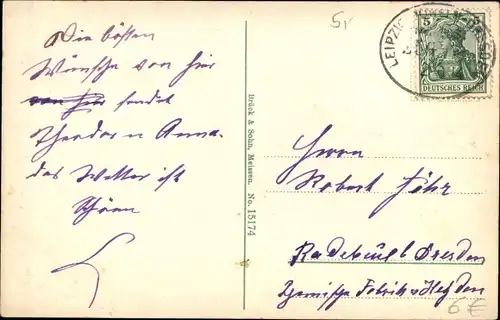 Die besten
Wünsche von hier
von hier sendet
Theodor u Anna.
das Wetter ist
schön
Brück & Sohn, Meissen. No. 15174
5,-
LEIPZIG
5
DEUTSCHES REICH
Herrn
Robert
Radebeul b Dresden
Chemische Fabrik v Heyden
6 €